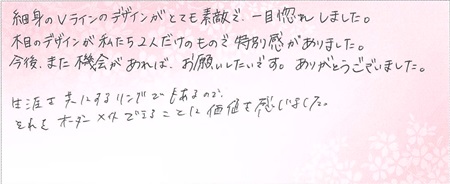 細身のVラインのデザインがとても素敵で、一目惚れしました。
木目のデザインが私たち2人だけのもので特別感がありました。
今後、また機会があれば、お願いしたいです。ありがとうございました。
生涯を共にするリングでもあるので、
それをオーダーメイドできることに価値を感じました。